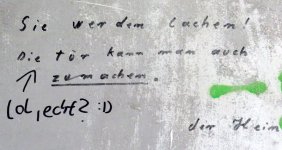 Sie werden lachen!
Die Tür kann man auch
zumachen.
(ol, echt? :D
der Heim